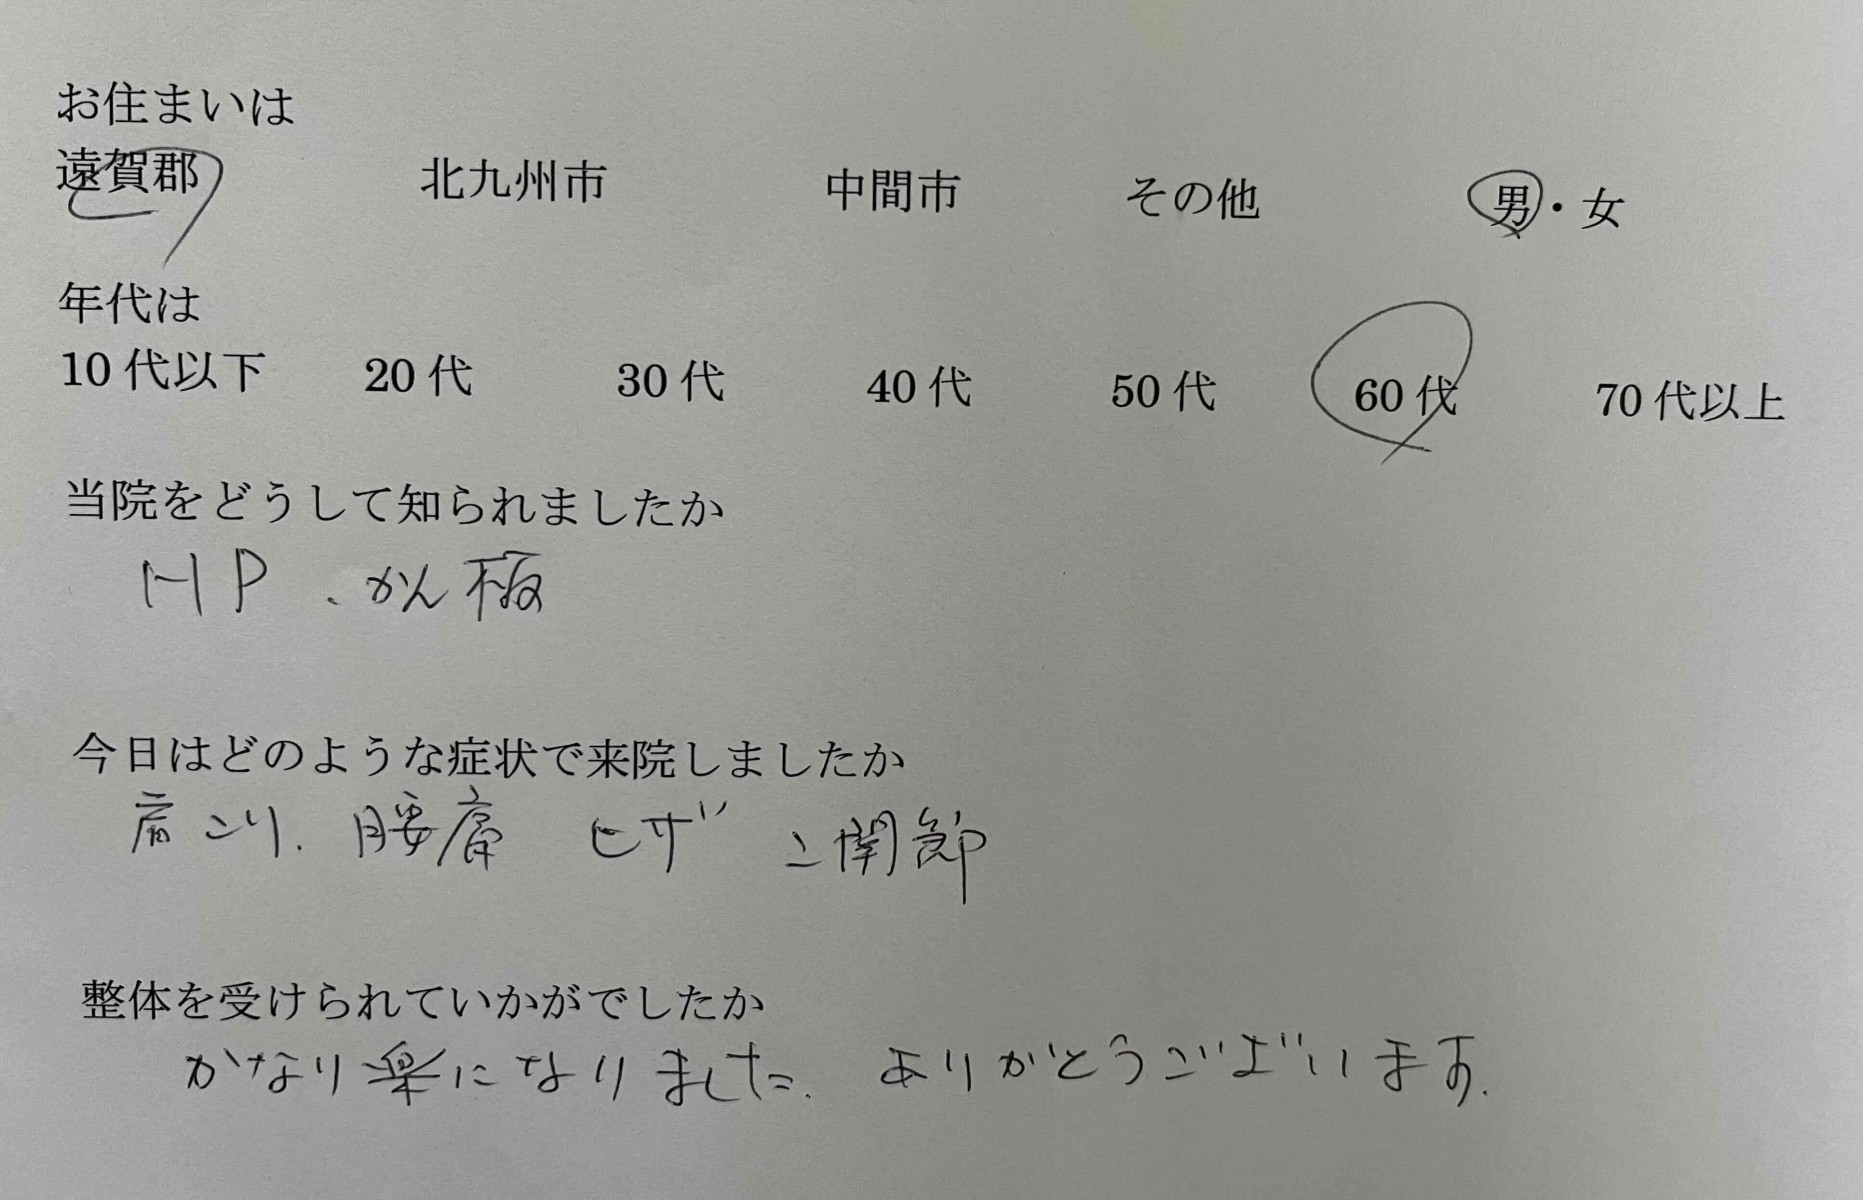 お住まいは
遠賀郡 北九州市 中間市 その他 男・女
年代は
10代以下 20代 30代 40代 50代 60代 70代以上
当院をどうして知られましたか
HP、かん板
今日はどのような症状で来院しましたか
肩こり、腰痛 ヒザ こ関節
整体を受けられていかがでしたか
かなり楽になりました。ありがとうございます。